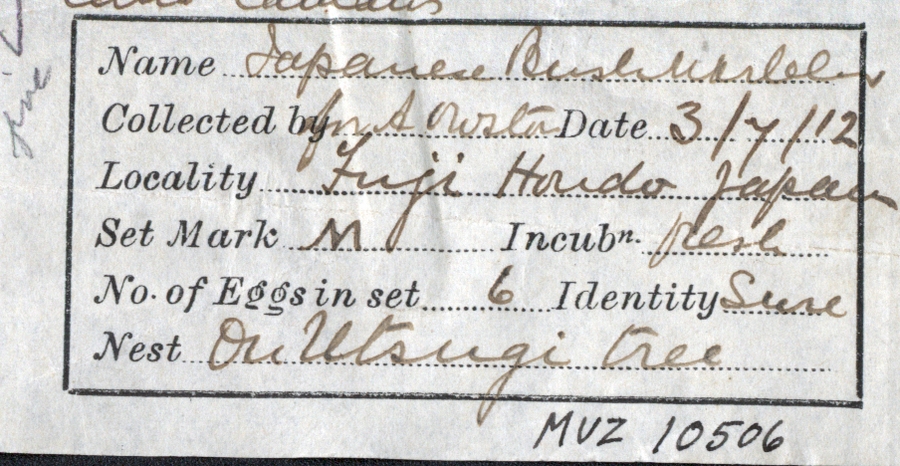 Name Japanese Bush Warbler
Collected by for A Owston Date 3/7/12
Locality Fuji Hondo Japan
Set Mark M Incubn. fresh
No. of Eggs in set 6 Identity Sure
Nest On Utsugi tree
MVZ 10506